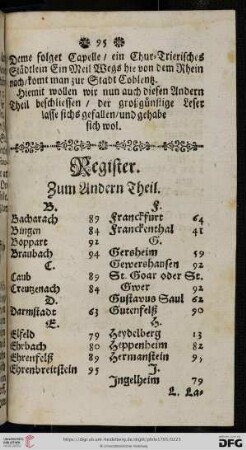 ❧ 95 ☙
Deme folget Capelle / ein Chur-Trierisches
Städtlein Ein Meil Wegs hie von dem Rhein
nach / komt man zur Stadt Coblentz.
Hiemit wollen wir nun auch diesen Andern
Theil beschliessen / der großgünstige Leser
lasse sichs gefallen / und gehabe
sich wol.
Register.
Zum Andern Theil.
B.
Bacharach 89
Bingen 84
Boppart 92
Braubach 94
C.
Caub 89
Creutzenach 84
D.
Darmstadt 63
E.
Elfeld 79
Erbach 80
Ehrenfelß 89
Ehrenbreitstein 95
F.
Franckfurt 64
Franckenthal 41
G.
Gersheim 59
Gewershausen 92
St. Goar oder St.
Gwer 92
Gustavus Saul 62
Gutenfelß 90
H.
Heydelberg 13
Heppenheim 82
Hermanstein 95
J.
Ingelheim 79
L. La-